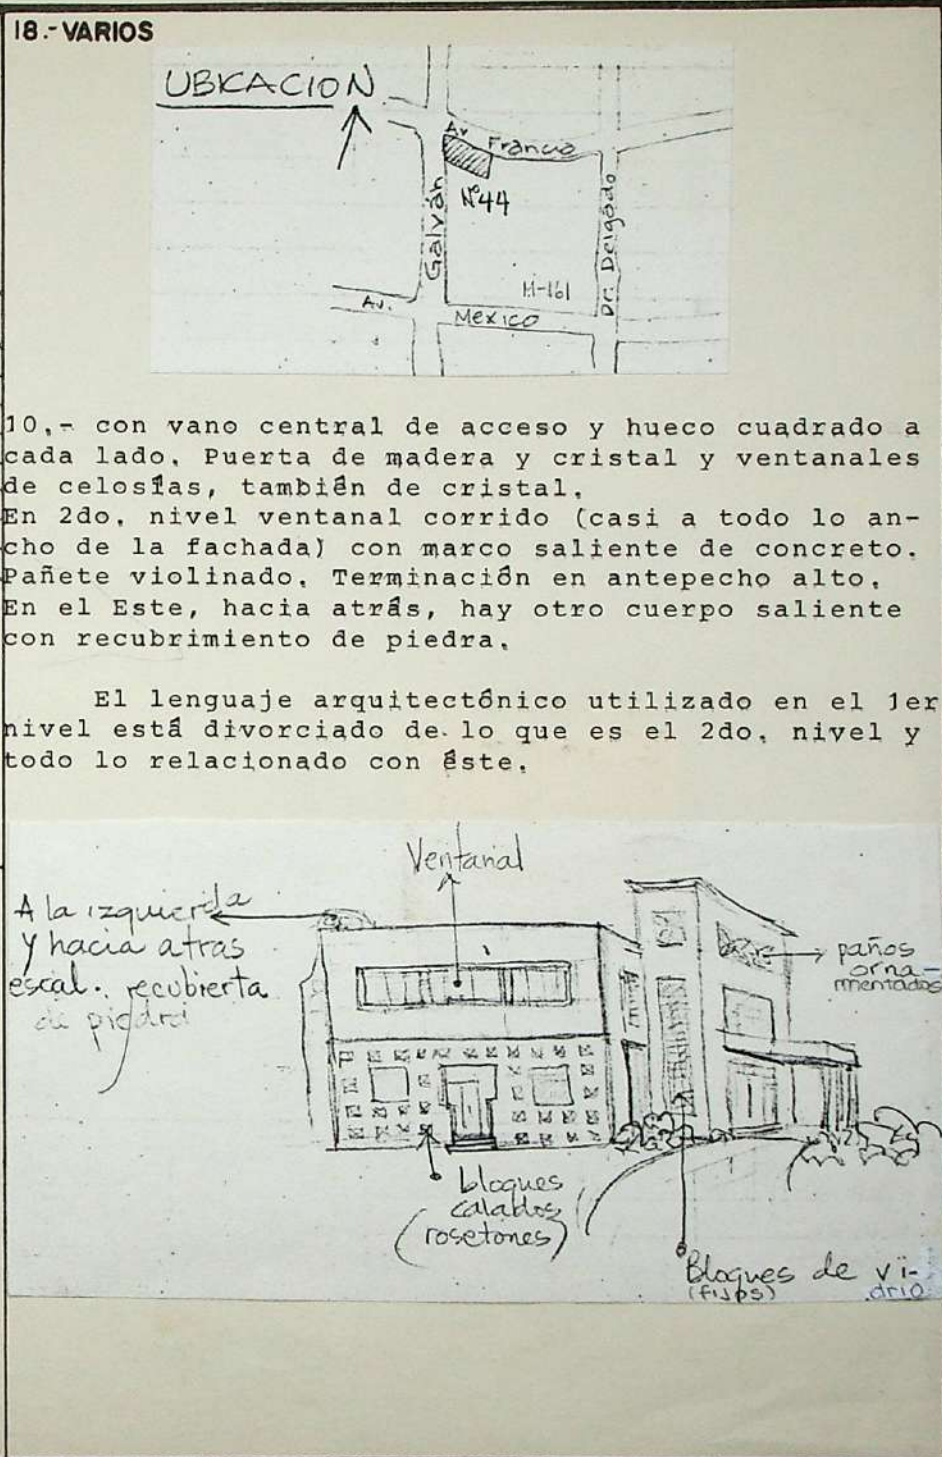 18.- VARIOS
UBICACION
Av. Francia
Nº44
Galván
Dr. Delgado
M-161
Av. Mexico
10,- con vano central de acceso y hueco cuadrado a
cada lado. Puerta de madera y cristal y ventanales
de celosías, también de cristal.
En 2do. nivel ventanal corrido (casi a todo lo an-
cho de la fachada) con marco saliente de concreto.
Pañete violinado. Terminación en antepecho alto.
En el Este, hacia atrás, hay otro cuerpo saliente
con recubrimiento de piedra.
El lenguaje arquitectónico utilizado en el 1er
nivel está divorciado de lo que es el 2do. nivel y
todo lo relacionado con éste.
Ventanal
A la izquierda
y hacia atras
escal. recubierta
de piedra
paños
orna-
mentados
bloques
calados
(rosetones)
Bloques de vi-
drio
(fijos)